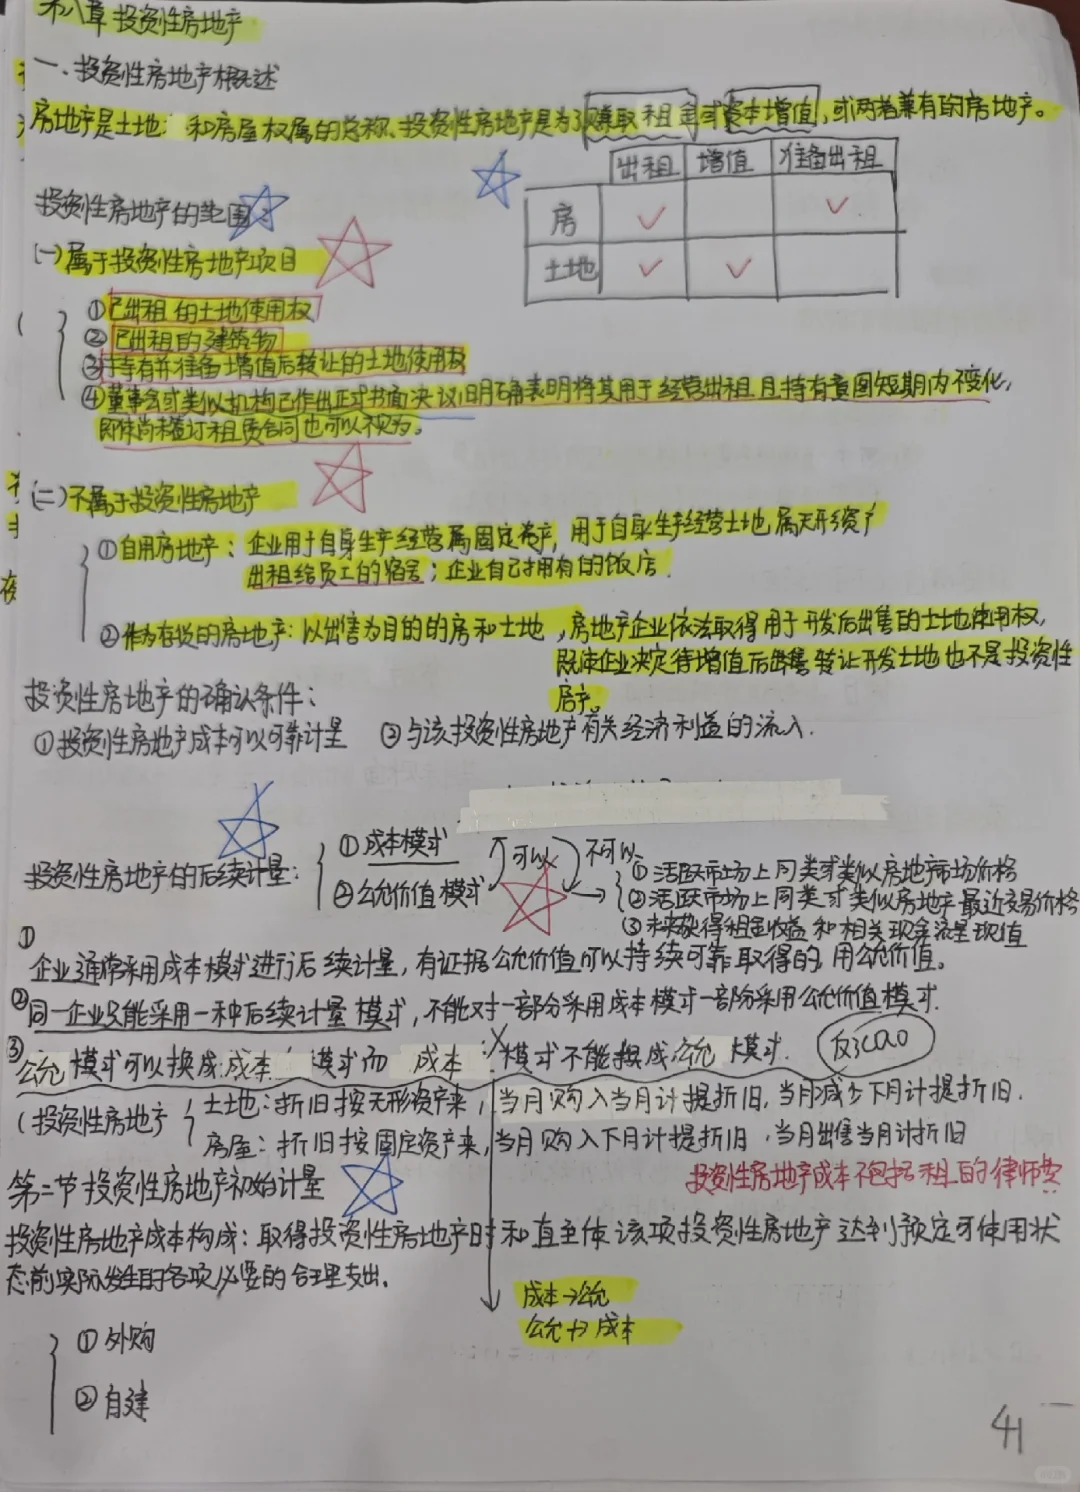 第八章 投资性房地产
一、投资性房地产概述
房地产是土地 和房屋权属的总称、投资性房地产是为了赚取租金或资本增值,或两者兼有的房地产。
出租 增值 准备出租
房 ✓ ✓
土地 ✓ ✓
投资性房地产的范围:
(一)属于投资性房地产项目
①已出租的土地使用权
②已出租的建筑物
③持有并准备增值后转让的土地使用权
④董事会或类似机构已作出正式书面决议,明确表明将其用于经营出租且持有意图短期内不变化,
即使尚未签订租赁合同也可以视为。
(二)不属于投资性房地产
①自用房地产:企业用于自身生产经营属固定资产,用于自身生产经营土地,属无形资产
出租给员工的宿舍;企业自己拥有的饭店.
②作为存货的房地产:以出售为目的的房和土地,房地产企业依法取得用于开发后出售的土地使用权,
既使企业决定待增值后出售转让开发土地也不是投资性
房产。
投资性房地产的确认条件:
①投资性房地产成本可以可靠计量 ②与该投资性房地产有关经济利益的流入.
投资性房地产的后续计量:
①成本模式
②公允价值模式
可以 不可以
①活跃市场上同类或类似房地产市场价格
②活跃市场上同类或类似房地产最近交易价格
③未来获得租金收益和相关现金流量现值
①企业通常采用成本模式进行后续计量,有证据公允价值可以持续可靠取得的,用公允价值。
②同一企业只能采用一种后续计量模式,不能对一部分采用成本模式一部分采用公允价值模式.
③公允模式可以换成成本 模式而 成本 模式不能换成公允 模式. 反了
(投资性房地产
土地:折旧按无形资产来,当月购入当月计提折旧,当月减少下月计提折旧.
房屋:折旧按固定资产来,当月购入下月计提折旧,当月出售当月计折旧
投资性房地产成本不包括租的律师费
第二节投资性房地产初始计量
投资性房地产成本构成:取得投资性房地产时和直至使该项投资性房地产达到预定可使用状
态前实际发生的各项必要的合理支出.
成本→公允
公允↛成本
①外购
②自建
41